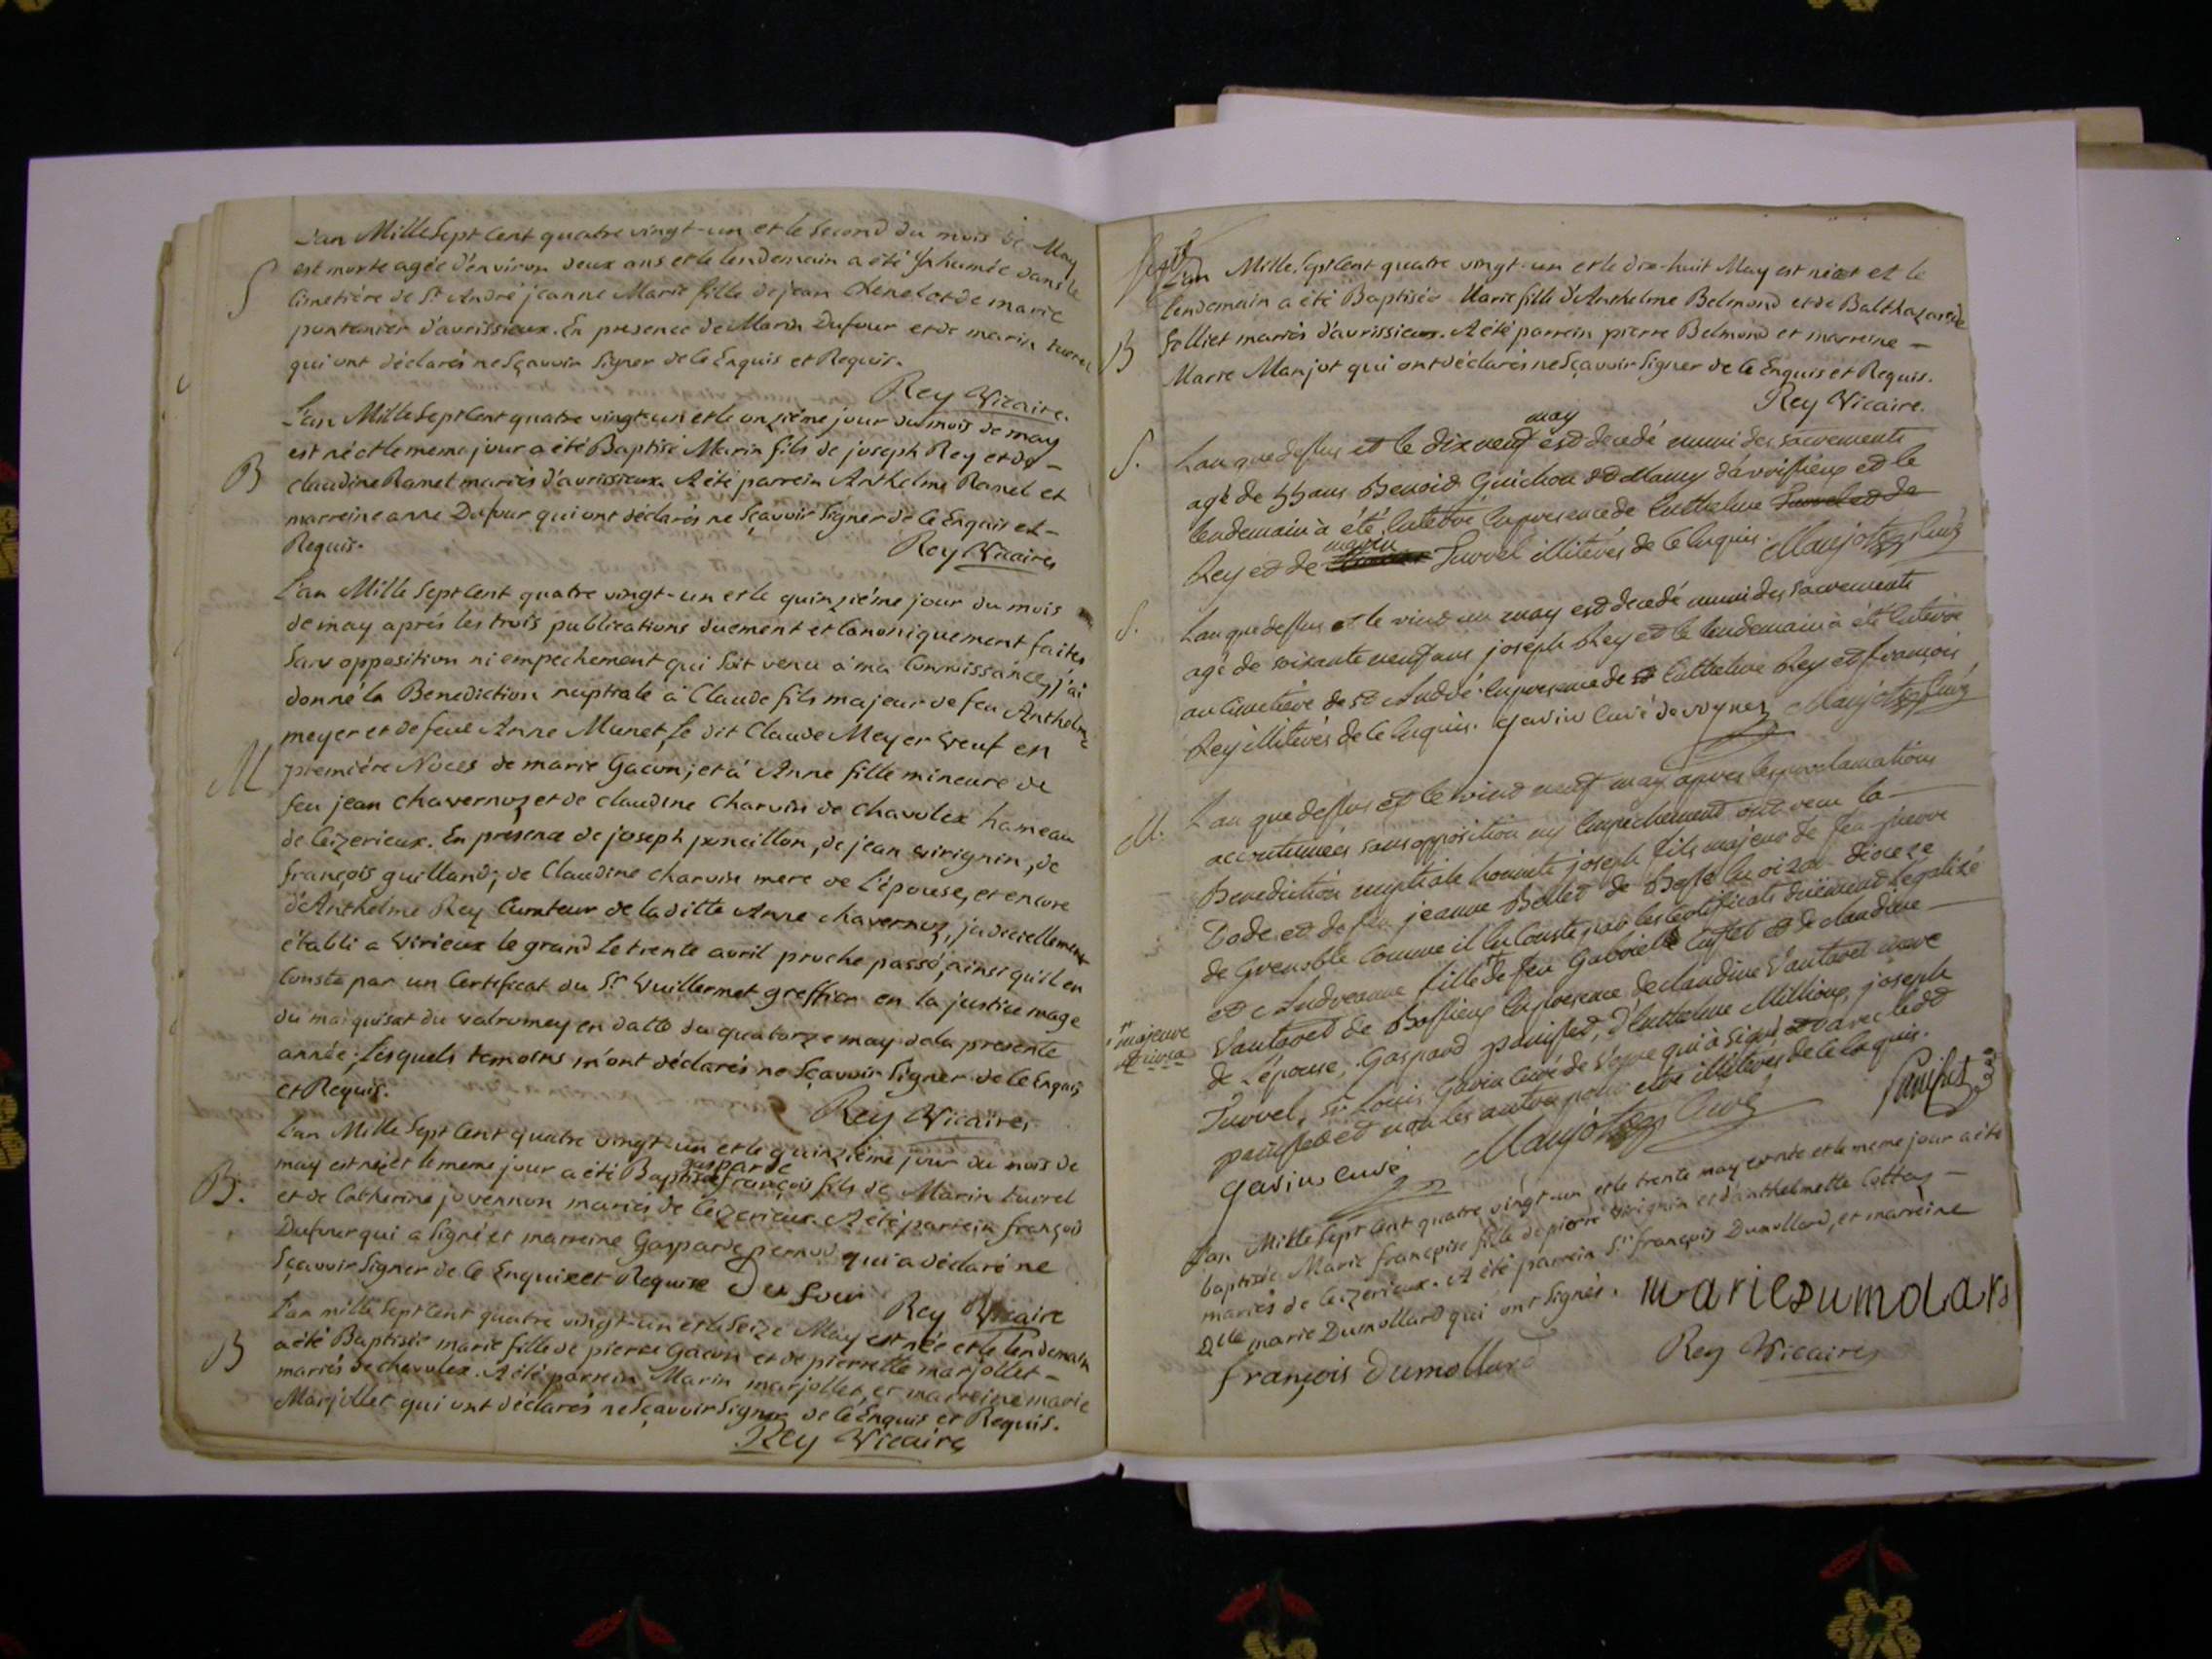 L'an Mille Sept Cent quatre vingt-un et le second du mois de May
est morte agée d'environ deux ans et le lendemain a été Inhumée dans le
S
Cimetière de St André jeanne Marie fille de jean Chenelot de marie
pontanier d'avrissieux. En presence de Marin Dufour et de marin turrel
qui ont déclarés ne Sçavoir Signer de ce Enquis et Requis.
Rey Vicaire.
L'an Mille Sept Cent quatre vingt-un et le onzième jour du mois de may
est né et le meme jour a été Baptisé Marin fils de joseph Rey et de -
B
claudine Ramel mariés d'avrissieux. A été parrein Anthelme Ramel et
marreine anne Dufour qui ont déclarés ne Sçavoir Signer de ce Enquis et -
Requis.
Rey Vicaire
L'an Mille Sept Cent quatre vingt-un et le quinzième jour du mois
de may aprés les trois publications duement et Canoniquement faites
Sans opposition ni empechement qui Soit venu à ma Connoissance, j'ai
donné la Benediction nuptiale à Claude fils majeur de feu Anthelme
meyer et de feue Anne Munet, le dit Claude Meyer Veuf en
M
première Nôces de marie Gacon; et à Anne fille mineure de
feu jean Chavernoz et de claudine Charvin de chavolex hameau
de Ceizerieux. En présence de joseph poncillon, de jean virignin, de
françois guilland; de Claudine charvin mere de l'épouse, et encore
d'Anthelme Rey Curateur de la ditte Anne Chavernoz, judiciellement
établi a virieux le grand le trente avril proche passé, ainsi qu'il en
Conste par un Certificat du Sr Vuillermet greffier en la justice mage
du marquisat du valromey en datte du quatorze may de la presente
année; lesquels temoins m'ont déclarés ne Sçavoir Signer de ce Enquis
et Requis.
Rey Vicaire
L'an Mille Sept Cent quatre vingt-un et le quinzième jour du mois de
may est né et le meme jour a été Baptisé gasparde françois fils de Marin turrel
B.
et de Catherine jovennon mariés de Ceizerieux. A été parrein françois
Dufour qui a signé et marreine Gasparde pernod qui a déclaré ne
Sçavoir Signer de ce Enquise et Requise Dufour
Rey Vicaire
L'an mille Sept Cent quatre vingt-un et le Seize May est née et le lendemain
B
a été Baptisée marie fille de pierre Gacon et de pierrette marjollet -
mariés de chavolex. A été parrein Marin marjollet, et marreine marie
Marjollet qui ont déclarés ne Sçavoir Signer de ce Enquis et Requis.
Rey Vicaire
L'an Mille Sept Cent quatre vingt-un et le dix-huit May est née et le
lendemain a été Baptisée Marie fille d'Anthelme Belmond et de Balthazarde
B
Solliet mariés d'avrissieux. A été parrein pierre Belmond et marreine -
Marie Manjot qui ont déclarés ne Sçavoir Signer de ce Enquis et Requis.
Rey Vicaire.
S.
L'an que dessus et le dix neuf may est decedé muni des sacrements
agé de 55 ans Benoid Guichon dt Mamy d'avrissieux et le
lendemain à été Enterré En presence de Enthelme Turrel et de
Rey et de marin Turrel illiterés de ce Enquis. Manjot Curé
S.
L'an que dessus et le vingt un may est decedé muni des sacrements
agé de soixante neuf ans joseph Rey et le lendemain à été Enterré
au Cimetière de St André. En presence de Enthelme Rey et françois
Rey illiterés de ce Enquis. gavin Curé de Manjot Curé
M.
L'an que dessus et le vint neuf may apres les proclamations
accoutumées sans opposition ny Empechement ont receu la
Benediction nuptiale honnete joseph fils majeur de feu pierre
Dode et de feu jeanne Bellet de Besse En oizan Dioceze
de Grenoble Comme il En Conste par les Certificats duëment légalisé
et Andreanne fille de feu Gabriel Cuffet et de claudine
" majeure
Vantaret de Bossieux En presence de claudine Vantaret mere
de L'épouse, Gaspard painsfet, d'Enthelme Millioux, joseph
Turrel, Sr Louis Gavin Curé de qui à signé avec ledt
et non les autres pour etre illiterés de ce Enquis.
gavin curé Manjot Curé
L'an Mille Sept Cent quatre vingt-un et le trente may est née et le meme jour a été
baptisée Marie françoise fille de pierre virignin et d'anthelmette Cottaz -
mariés de Ceizerieux. A été parrein Sr françois Dumollard, et marreine
Dlle marie Dumollard qui ont signés. marie Dumolard
françois Dumollard
Rey Vicaire